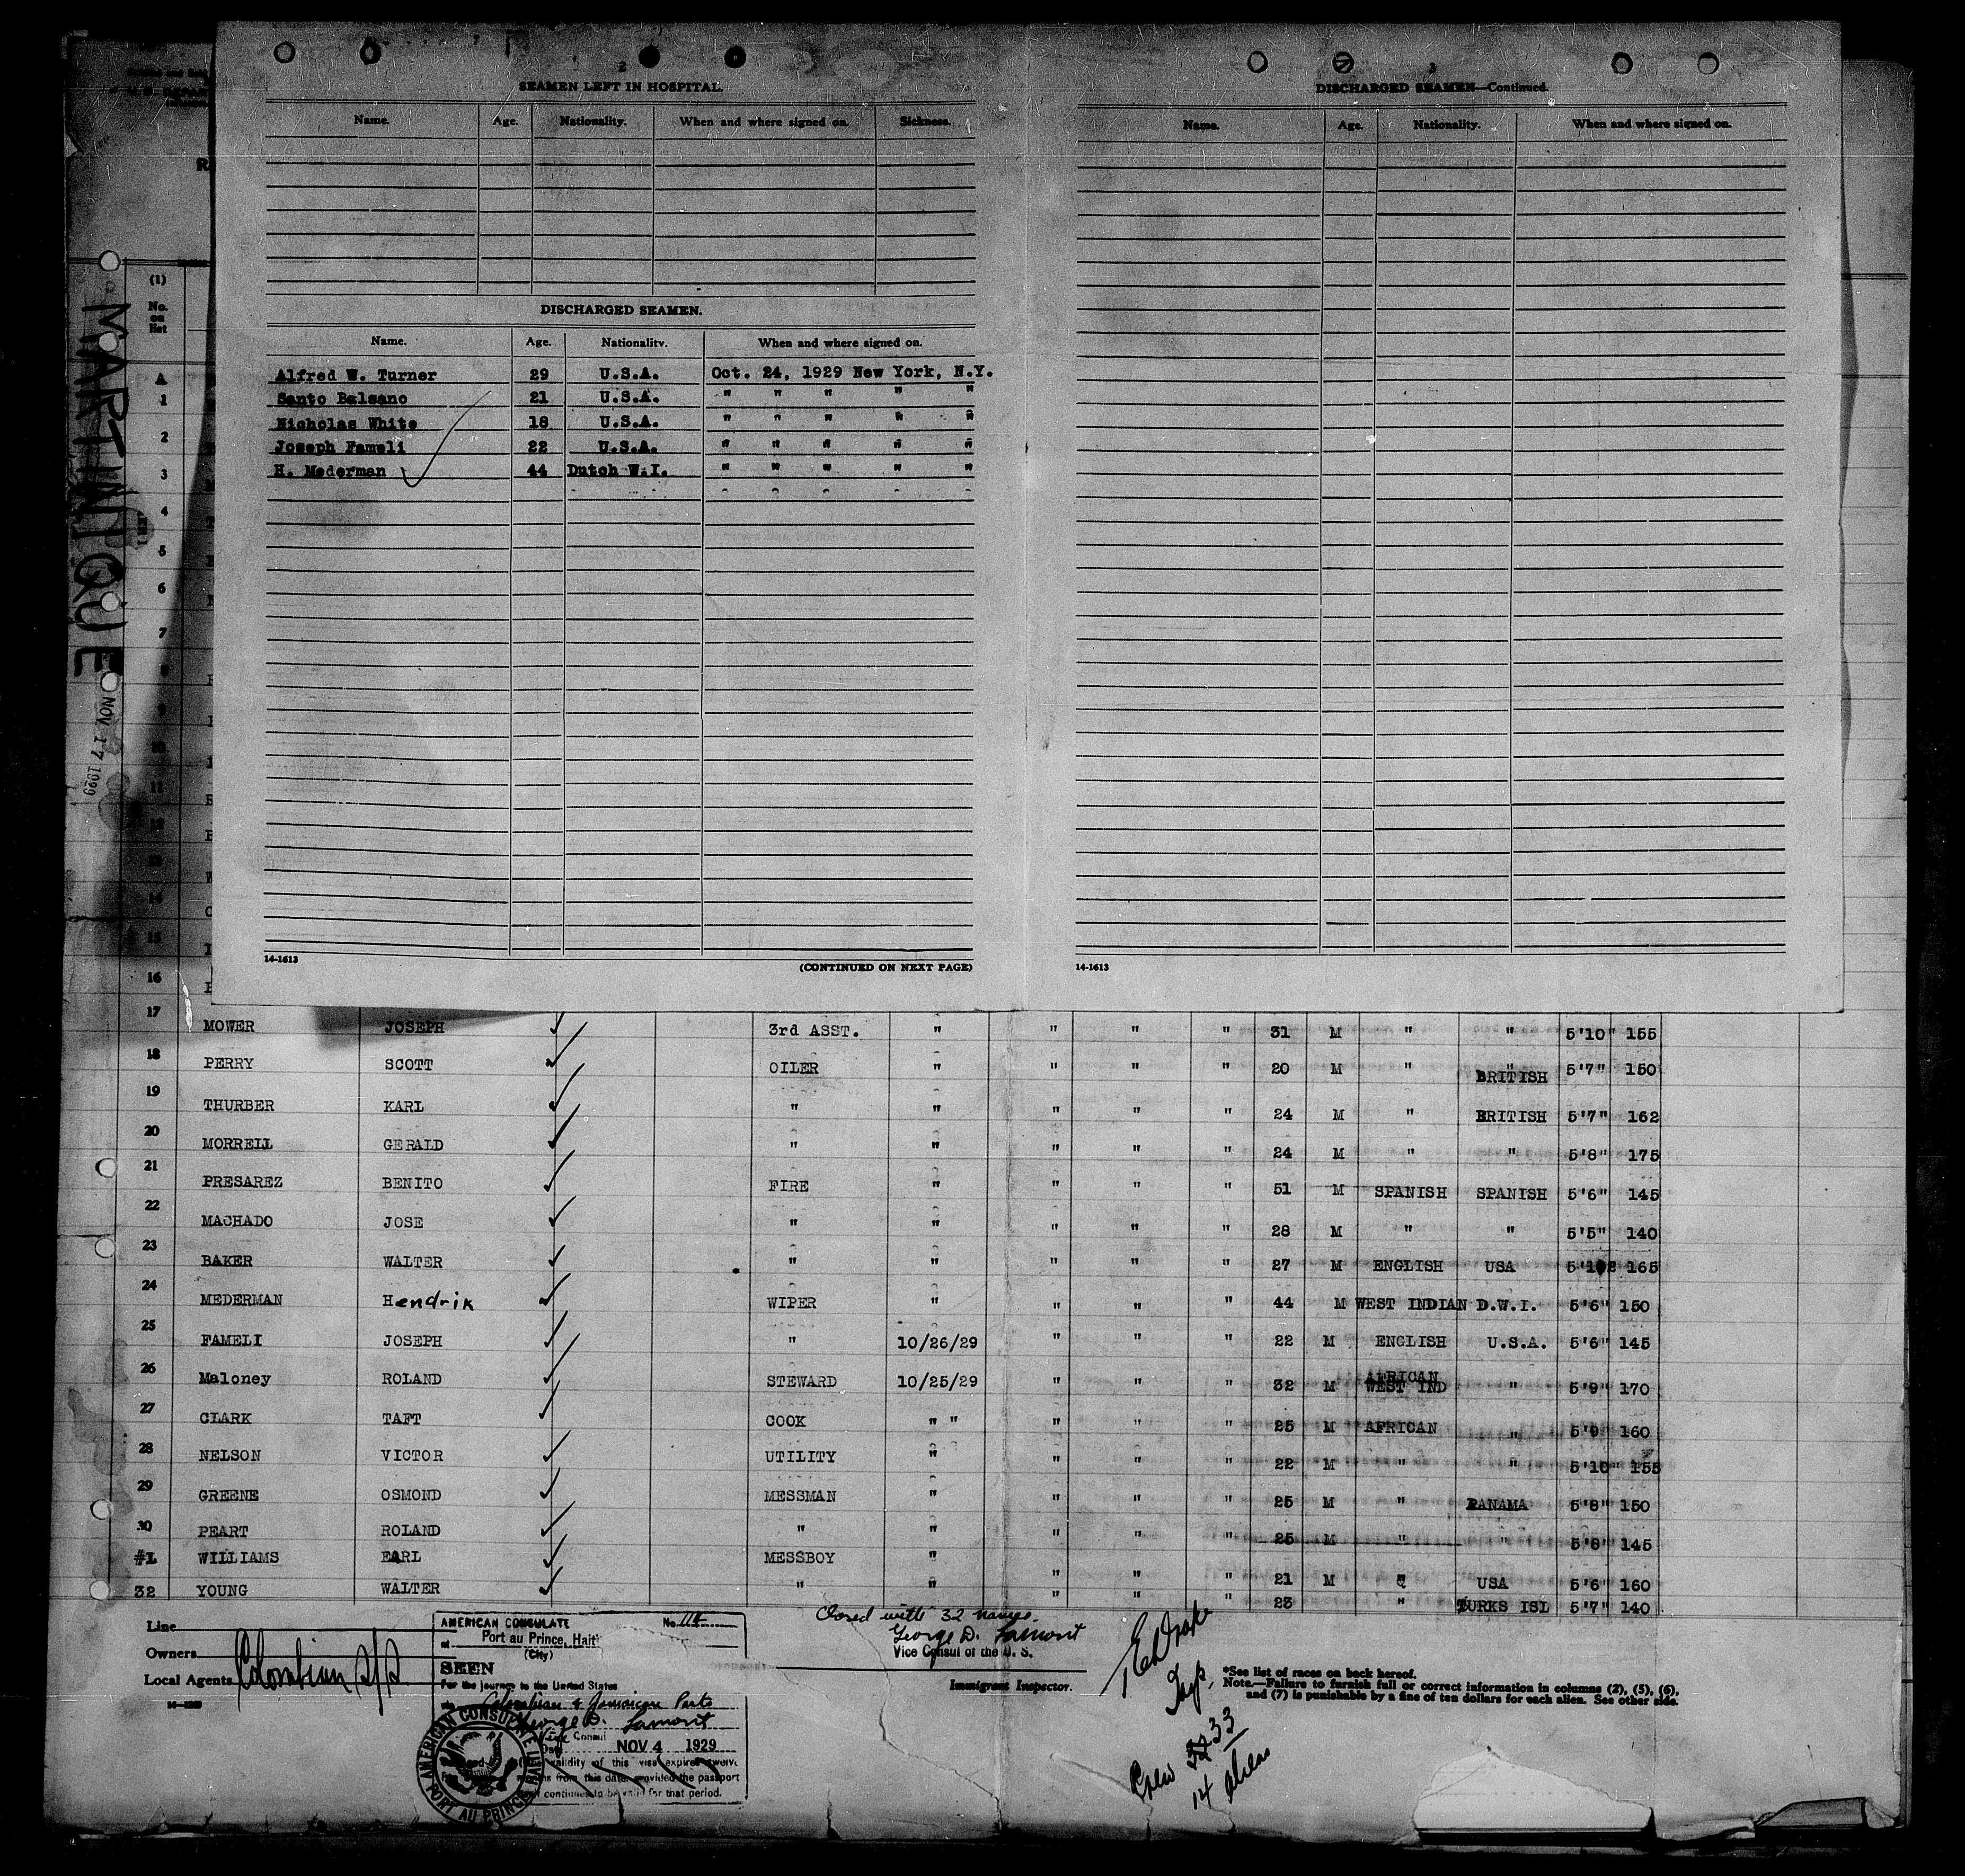 2
SEAMEN LEFT IN HOSPITAL.
Name. Age. Nationality. When and where signed on. Sickness.
DISCHARGED SEAMEN.
Name. Age. Nationality. When and where signed on.
Alfred W. Turner 29 U.S.A. Oct. 24, 1929 New York, N.Y.
Santo Balsano 21 U.S.A. " " " " "
Nicholas White 18 U.S.A. " " " " "
Joseph Fameli 22 U.S.A. " " " " "
H. Mederman 44 Dutch W.I. " " " " "
14-1613
(CONTINUED ON NEXT PAGE)
3
DISCHARGED SEAMEN—Continued.
Name. Age. Nationality. When and where signed on.
14-1613
MARTINIQUE
NOV 17 1929
(1)
No.
on
list
A
1
2
3
4
5
6
7
8
9
10
11
12
13
14
15
16
17 MOWER JOSEPH 3rd ASST. " " " " 31 M " " 5'10" 155
18 PERRY SCOTT OILER " " " " 20 M " " BRITISH 5'7" 150
19 THURBER KARL " " " " " 24 M " BRITISH 5'7" 162
20 MORRELL GERALD " " " " " 24 M " " 5'8" 175
21 PRESAREZ BENITO FIRE " " " " 51 M SPANISH SPANISH 5'6" 145
22 MACHADO JOSE " " " " " 28 M " " 5'5" 140
23 BAKER WALTER " " " " " 27 M ENGLISH USA 165
24 MEDERMAN Hendrik WIPER " " " " 44 M WEST INDIAN D.W.I. 5'6" 150
25 FAMELI JOSEPH " 10/26/29 " " " 22 M ENGLISH U.S.A. 5'6" 145
26 Maloney ROLAND STEWARD 10/25/29 " " " 32 M AFRICAN WEST IND " 5'9" 170
27 CLARK TAFT COOK " " " " " 25 M AFRICAN " 5'9" 160
28 NELSON VICTOR UTILITY " " " " 22 M " " 5'10" 155
29 GREENE OSMOND MESSMAN " " " " 25 M " PANAMA 5'8" 150
30 PEART ROLAND " " " " " 25 M " " 5'8" 145
WILLIAMS EARL MESSBOY " " " " 21 M " USA 5'6" 160
32 YOUNG WALTER " " " " " 23 " TURKS ISL 5'7" 140
Line
Owners
Local Agents Colombian S/S
AMERICAN CONSULATE No.
at Port au Prince, Haiti
(City)
SEEN
For the journey to the United States
via Colombian & Jamaican Ports
George D. Lamont
Vice Consul
Date NOV 4 1929
validity of this visa expires twelve
from this date provided the passport
continues to be valid for that period.
AMERICAN CONSULATE
PORT AU PRINCE HAITI
Closed with 32 names.
George D. Lamont
Vice Consul of the U. S.
Immigrant Inspector.
Crew 33
14 aliens
*See list of races on back hereof.
Note.—Failure to furnish full or correct information in columns (2), (5), (6),
and (7) is punishable by a fine of ten dollars for each alien. See other side.